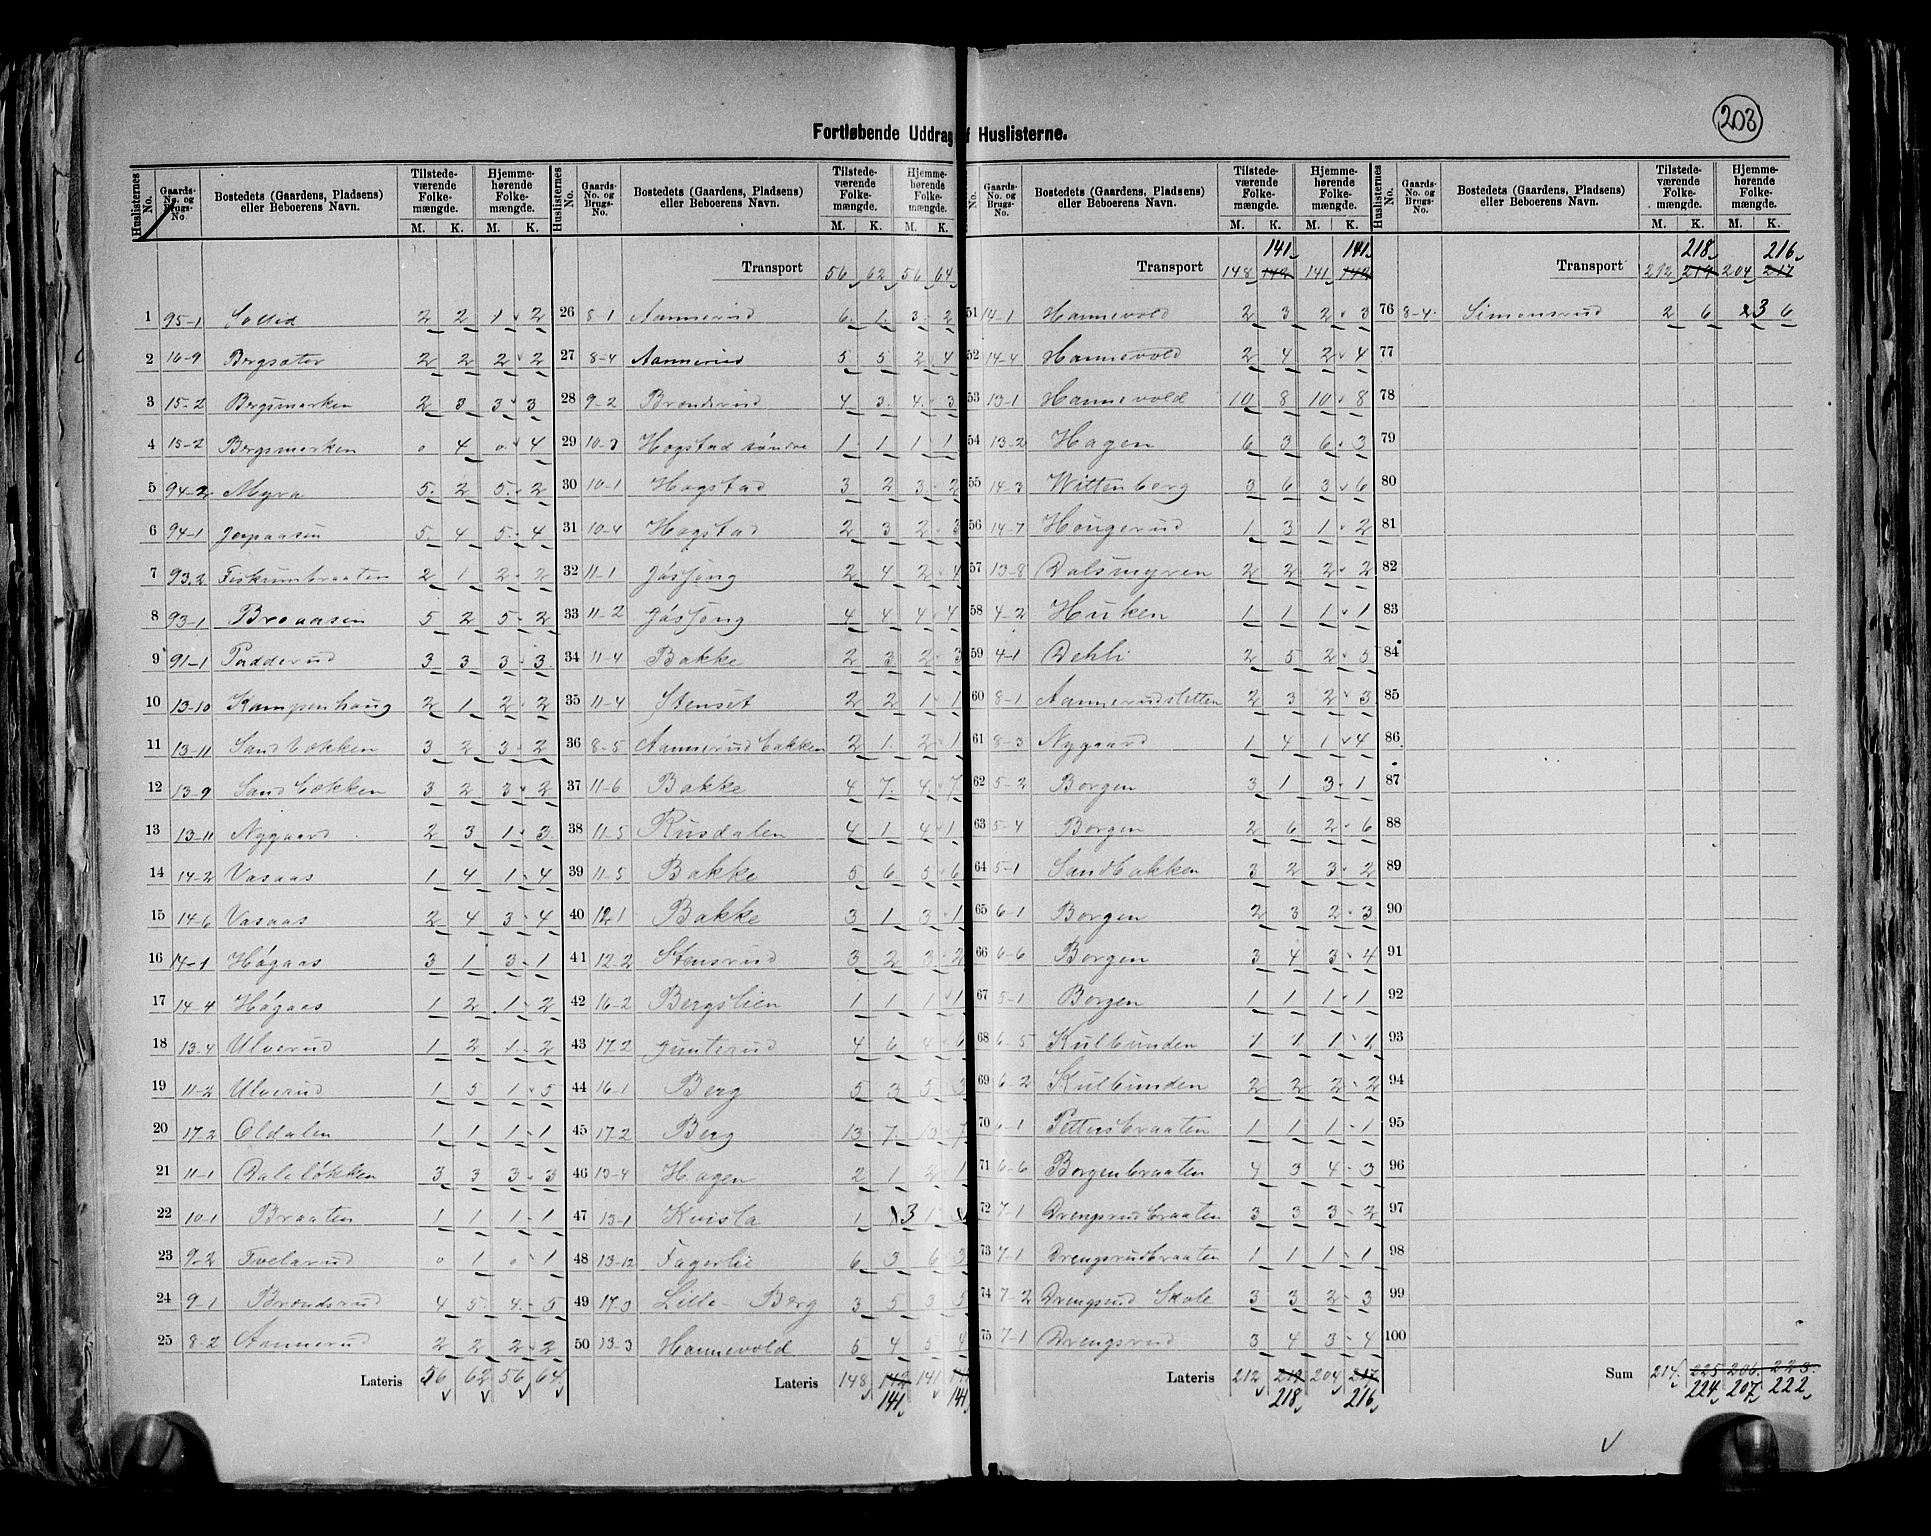 203
Fortløbende Uddrag f Huslisterne.
Huslisternes No. Gaards-No. og Brugs-No Bostedets (Gaardens, Pladsens) eller Beboerens Navn. Tilstede-værende Folke-mængde. Hjemme-hørende Folke-mængde. M. K. M. K.
Lateris 56 62 56 64
1 95-1 Sollid 2 2 1 2
2 16-9 Bergsæter 2 2 2 2
3 15-2 Bergsmarken 2 3 3 3
4 15-2 Bergsmarken 0 4 0 4
5 94-2 Myra 5 2 5 2
6 94-1 Jerpaasen 5 4 5 4
7 93-2 Fiskumbraaten 2 1 2 2
8 93-1 Braaasen 5 2 5 2
9 91-1 Padderud 3 3 3 3
10 13-10 Kampenhaug 2 1 2 2
11 13-11 Sandbækken 3 2 3 2
12 13-9 Sandbækken 3 2 3 2
13 13-11 Nygaard 2 3 1 3
14 14-2 Vasaas 1 4 1 4
15 14-6 Vasaas 2 4 3 4
16 14-1 Høgaas 3 1 3 1
17 14-4 Høgaas 1 2 1 2
18 13-4 Ulverud 1 2 1 2
19 11-2 Ulverud 1 5 1 5
20 17-2 Oldalen 1 1 1 1
21 11-1 Daleløkken 3 3 3 3
22 10-1 Braaten 1 1 1 1
23 9-2 Tvelarud 0 1 0 1
24 9-1 Brændsrud 4 5 4 5
25 8-2 Aannerud 2 2 2 2
Lateris 56 62 56 64
Huslisternes No. Gaards-No. og Brugs-No. Bostedets (Gaardens, Pladsens) eller Beboerens Navn. Tilstede-værende Folke-mængde. Hjemme-hørende Folke-mængde. M. K. M. K.
Transport 56 62 56 64
26 8-1 Aannerud 6 1 3 2
27 8-4 Aannerud 5 5 2 4
28 9-2 Brændsrud 4 3 4 3
29 10-3 Hogstad søndre 1 1 1 1
30 10-1 Hogstad 3 2 3 2
31 10-4 Hogstad 2 3 2 3
32 11-1 Jøssong 2 4 2 4
33 11-2 Jøssong 4 4 4 4
34 11-4 Bakke 2 3 2 3
35 11-4 Stenset 2 2 1 1
36 8-5 Aannerudbakken 2 1 2 1
37 11-6 Bakke 4 7 4 7
38 11-5 Rusdalen 4 1 4 1
39 11-5 Bakke 5 6 5 6
40 12 1 Bakke 3 1 3 1
41 12-2 Stensrud 3 2 3 2
42 16-2 Bergslien 1 1 1 1
43 17-2 Gunterud 4 6 4 6
44 16-1 Berg 5 3 5 3
45 17-2 Berg 13 7 13 7
46 13-4 Hagen 2 1 2 1
47 13-1 Kvista 1 3 1
48 13-12 Fagerlie 6 3 6 3
49 17-3 Lille-Berg 3 5 3 5
50 13-3 Hannevold 5 4 5 4
Lateris 148 142 141 141
141 141
No. Gaards-No. og Brugs-No. Bostedets (Gaardens, Pladsens) eller Beboerens Navn. Tilstede-værende Folke-mængde. Hjemme-hørende Folke-mængde. M. K. M. K.
141 141
Transport 148 142 141 142
51 14-1 Hannevold 2 3 2 3
52 14-4 Hannevold 2 4 2 4
53 13-1 Hannevold 10 8 10 8
54 13-2 Hagen 6 3 6 3
55 14-3 Wittenberg 3 6 3 6
56 14-7 Hougerud 1 3 1 2
57 13-8 Dalsmyren 2 2 2 2
58 4-2 Huken 1 1 1 1
59 4-1 Dehli 2 5 2 5
60 8-1 Aannerudsletten 2 3 2 3
61 8-3 Nygaard 1 4 1 4
62 5-2 Borgen 3 1 3 1
63 5-4 Borgen 2 6 2 6
64 5-1 Sandbakken 3 2 3 2
65 6-1 Borgen 2 3 2 3
66 6-6 Borgen 3 4 3 4
67 5-1 Borgen 1 1 1 1
68 6-5 Kulbunden 1 1 1 1
69 6-2 Kulbunden 2 2 2 2
70 6-1 Pettersbraaten 1 1 1 1
71 6-6 Borgenbraaten 4 3 4 3
72 7-1 Drengsrudbraaten 3 3 3 2
73 7-1 Drengsrudbraaten 1 1 1 1
74 7-2 Drengsrud Skole 3 3 2 3
75 7-1 Drengsrud 3 4 3 4
Lateris 212 219 204 217
218 216
Huslisternes No. Gaards-No. og Brugs-No. Bostedets (Gaardens, Pladsens) eller Beboerens Navn. Tilstede-værende Folke-mængde. Hjemme-hørende Folke-mængde. M. K. M. K.
218 216
Transport 212 219 204 217
76 8-4 Simonsrud 2 6 3 6
77
78
79
80
81
82
83
84
85
86
87
88
89
90
91
92
93
94
95
96
97
98
99
100
Sum 214 225 206 223
224 207 222